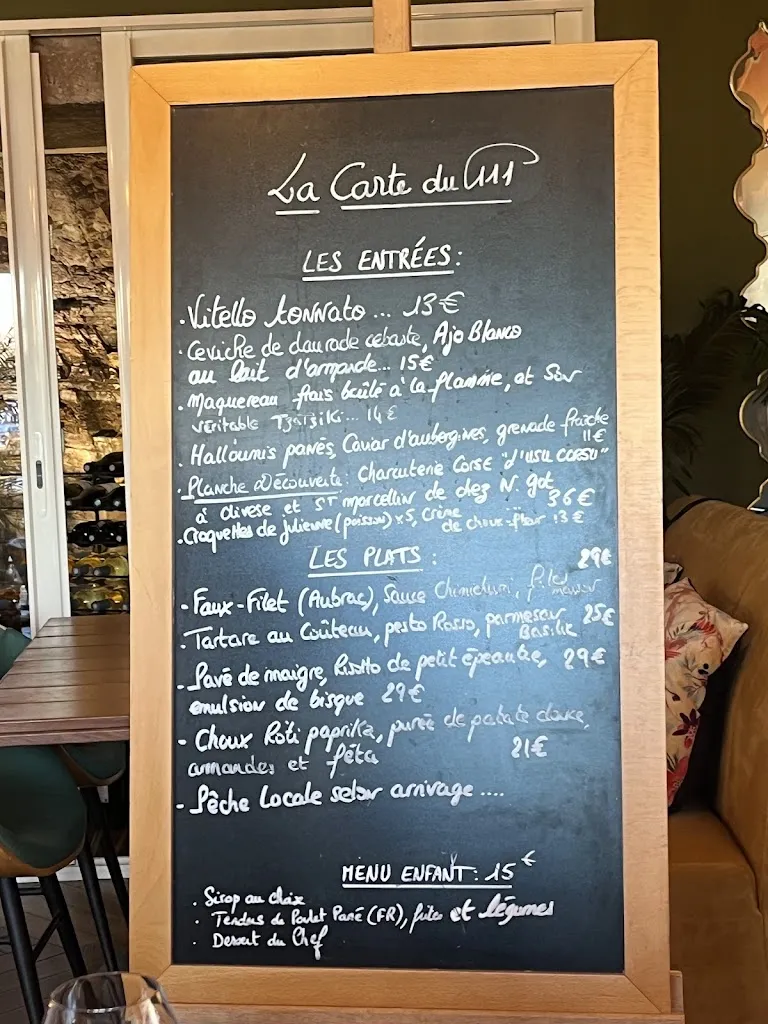 La Carte du 111
LES ENTRÉES:
.Vitello tonnato... 13€
.Ceviche de daurade cebaste, Ajo Blanco
au lait d'amande... 15€
.Maquereau frais brûlé à la flamme, et Son
véritable Tzatziki... 14€
.Halloumis panés, Caviar d'aubergines, grenade fraîche
11€
.Planche Découverte: Charcuterie Corse "d'usu corsu"
à olivese et ST marcellin de chez N. got 36€
.Croquettes de Julienne (poisson) x5, Crème
de choux-fleur 13€
LES PLATS:
29€
-Faux-Filet (Aubrac), Sauce Chimichurri, frites
maison
-Tartare au Couteau, pesto Rosso, parmesan 25€
Basilic
-Pavé de maigre, Risotto de petit épeautre, 29€
emulsion de bisque 29€
-Choux Rôti paprika, purée de patate douce,
amandes et féta 21€
-Pêche Locale selon arrivage ....
MENU ENFANT: 15€
. Sirop au choix
. Tendres de Poulet Pané (FR), frites et légumes
. Dessert du Chef